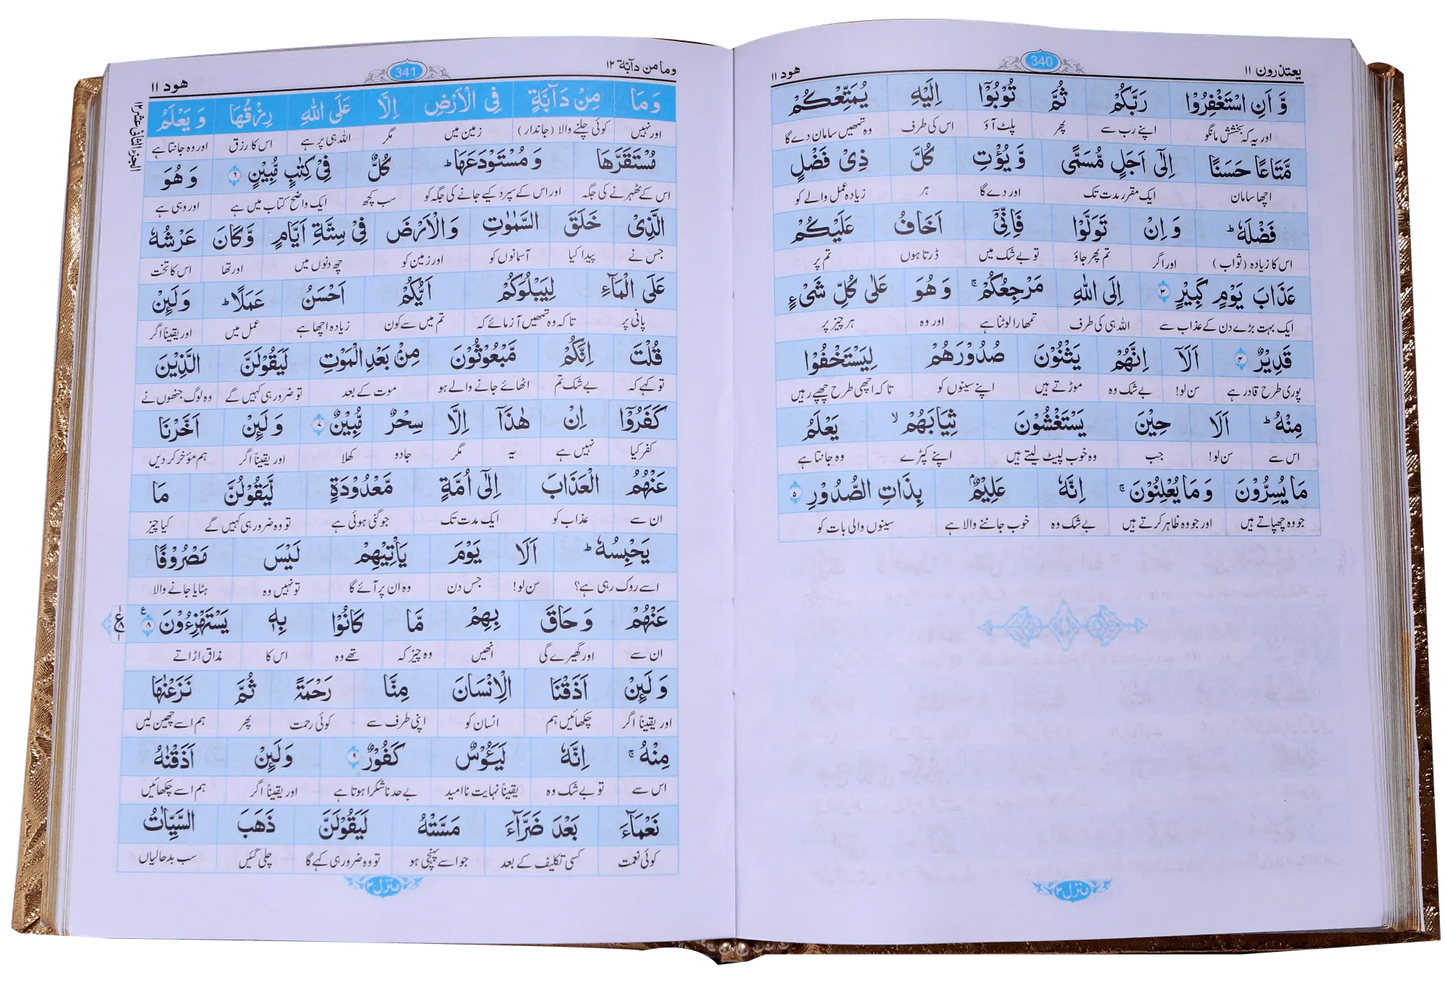 یعتذرون ۱۱
340
ھود ۱۱
وَّ اَنِ اسْتَغْفِرُوْا رَبَّكُمْ ثُمَّ تُوْبُوْۤا اِلَیْهِ یُمَتِّعْكُمْ
اور یہ کہ بخشش مانگو اپنے رب سے پھر پلٹ آؤ اس کی طرف وہ تمھیں سامان دے گا
مَّتَاعًا حَسَنًا اِلٰۤى اَجَلٍ مُّسَمًّى وَّ یُؤْتِ كُلَّ ذِیْ فَضْلٍ
اچھا سامان ایک مقرر مدت تک اور دے گا ہر زیادہ عمل والے کو
فَضْلَهٗ ؕ وَ اِنْ تَوَلَّوْا فَاِنِّیْۤ اَخَافُ عَلَیْكُمْ
اس کا زیادہ (ثواب) اور اگر تم پھر جاؤ تو بے شک میں ڈرتا ہوں تم پر
عَذَابَ یَوْمٍ كَبِیْرٍ ۳ اِلَى اللّٰهِ مَرْجِعُكُمْ ۚ وَ هُوَ عَلٰى كُلِّ شَیْءٍ
ایک بہت بڑے دن کے عذاب سے اللہ ہی کی طرف تمھارا لوٹنا ہے اور وہ ہر چیز پر
قَدِیْرٌ ۴ اَلَاۤ اِنَّهُمْ یَثْنُوْنَ صُدُوْرَهُمْ لِیَسْتَخْفُوْا
پوری طرح قادر ہے سن لو! بے شک وہ موڑتے ہیں اپنے سینوں کو تاکہ اچھی طرح چھپے رہیں
مِنْهُ ؕ اَلَا حِیْنَ یَسْتَغْشُوْنَ ثِیَابَهُمْ ۙ یَعْلَمُ
اس سے سن لو! جب وہ خوب لپیٹ لیتے ہیں اپنے کپڑے وہ جانتا ہے
مَا یُسِرُّوْنَ وَ مَا یُعْلِنُوْنَ ۚ اِنَّهٗ عَلِیْمٌۢ بِذَاتِ الصُّدُوْرِ ۵
جو وہ چھپاتے ہیں اور جو وہ ظاہر کرتے ہیں بے شک وہ خوب جاننے والا ہے سینوں والی بات کو
منزل ۳
وما من دآبّة ۱۲
341
ھود ۱۱
الجزء الثانی عشر ۱۲
وَ مَا مِنْ دَآبَّةٍ فِی الْاَرْضِ اِلَّا عَلَى اللّٰهِ رِزْقُهَا وَ یَعْلَمُ
اور نہیں کوئی چلنے والا (جاندار) زمین میں مگر اللہ ہی پر ہے اس کا رزق اور وہ جانتا ہے
مُسْتَقَرَّهَا وَ مُسْتَوْدَعَهَا ؕ كُلٌّ فِیْ كِتٰبٍ مُّبِیْنٍ ۶ وَ هُوَ
اس کے ٹھہرنے کی جگہ اور اس کے سپرد کیے جانے کی جگہ کو سب کچھ ایک واضح کتاب میں ہے اور وہی ہے
الَّذِیْ خَلَقَ السَّمٰوٰتِ وَ الْاَرْضَ فِیْ سِتَّةِ اَیَّامٍ وَّ كَانَ عَرْشُهٗ
جس نے پیدا کیا آسمانوں کو اور زمین کو چھ دنوں میں اور تھا اس کا تخت
عَلَى الْمَآءِ لِیَبْلُوَكُمْ اَیُّكُمْ اَحْسَنُ عَمَلًا ؕ وَ لَىِٕنْ
پانی پر تاکہ وہ تمھیں آزمائے کہ تم میں سے کون زیادہ اچھا ہے عمل میں اور یقیناً اگر
قُلْتَ اِنَّكُمْ مَّبْعُوْثُوْنَ مِنْۢ بَعْدِ الْمَوْتِ لَیَقُوْلَنَّ الَّذِیْنَ
تو کہے کہ بے شک تم اٹھائے جانے والے ہو موت کے بعد تو ضرور ہی کہیں گے وہ لوگ جنھوں نے
كَفَرُوْۤا اِنْ هٰذَاۤ اِلَّا سِحْرٌ مُّبِیْنٌ ۷ وَ لَىِٕنْ اَخَّرْنَا
کفر کیا نہیں ہے یہ مگر جادو کھلا اور یقیناً اگر ہم مؤخر کر دیں
عَنْهُمُ الْعَذَابَ اِلٰۤى اُمَّةٍ مَّعْدُوْدَةٍ لَّیَقُوْلُنَّ مَا
ان سے عذاب کو ایک مدت تک جو گنی ہوئی ہے تو وہ ضرور ہی کہیں گے کیا چیز
یَحْبِسُهٗ ؕ اَلَا یَوْمَ یَاْتِیْهِمْ لَیْسَ مَصْرُوْفًا
اسے روک رہی ہے؟ سن لو! جس دن وہ ان پر آئے گا تو نہیں وہ ہٹایا جانے والا
عَنْهُمْ وَ حَاقَ بِهِمْ مَّا كَانُوْا بِهٖ یَسْتَهْزِءُوْنَ ۸
ع
ان سے اور گھیرے گی انھیں وہ چیز کہ تھے وہ اس کا مذاق اڑاتے
وَ لَىِٕنْ اَذَقْنَا الْاِنْسَانَ مِنَّا رَحْمَةً ثُمَّ نَزَعْنٰهَا
اور یقیناً اگر چکھائیں ہم انسان کو اپنی طرف سے کوئی رحمت پھر ہم اسے چھین لیں
مِنْهُ ۚ اِنَّهٗ لَیَـُٔوْسٌ كَفُوْرٌ ۹ وَ لَىِٕنْ اَذَقْنٰهُ
اس سے تو بے شک وہ یقیناً نہایت ناامید بے حد ناشکرا ہوتا ہے اور یقیناً اگر ہم اسے چکھائیں
نَعْمَآءَ بَعْدَ ضَرَّآءَ مَسَّتْهُ لَیَقُوْلَنَّ ذَهَبَ السَّیِّاٰتُ
کوئی نعمت کسی تکلیف کے بعد جو اسے پہنچی ہو تو وہ ضرور ہی کہے گا چلی گئیں سب بدحالیاں
منزل ۳